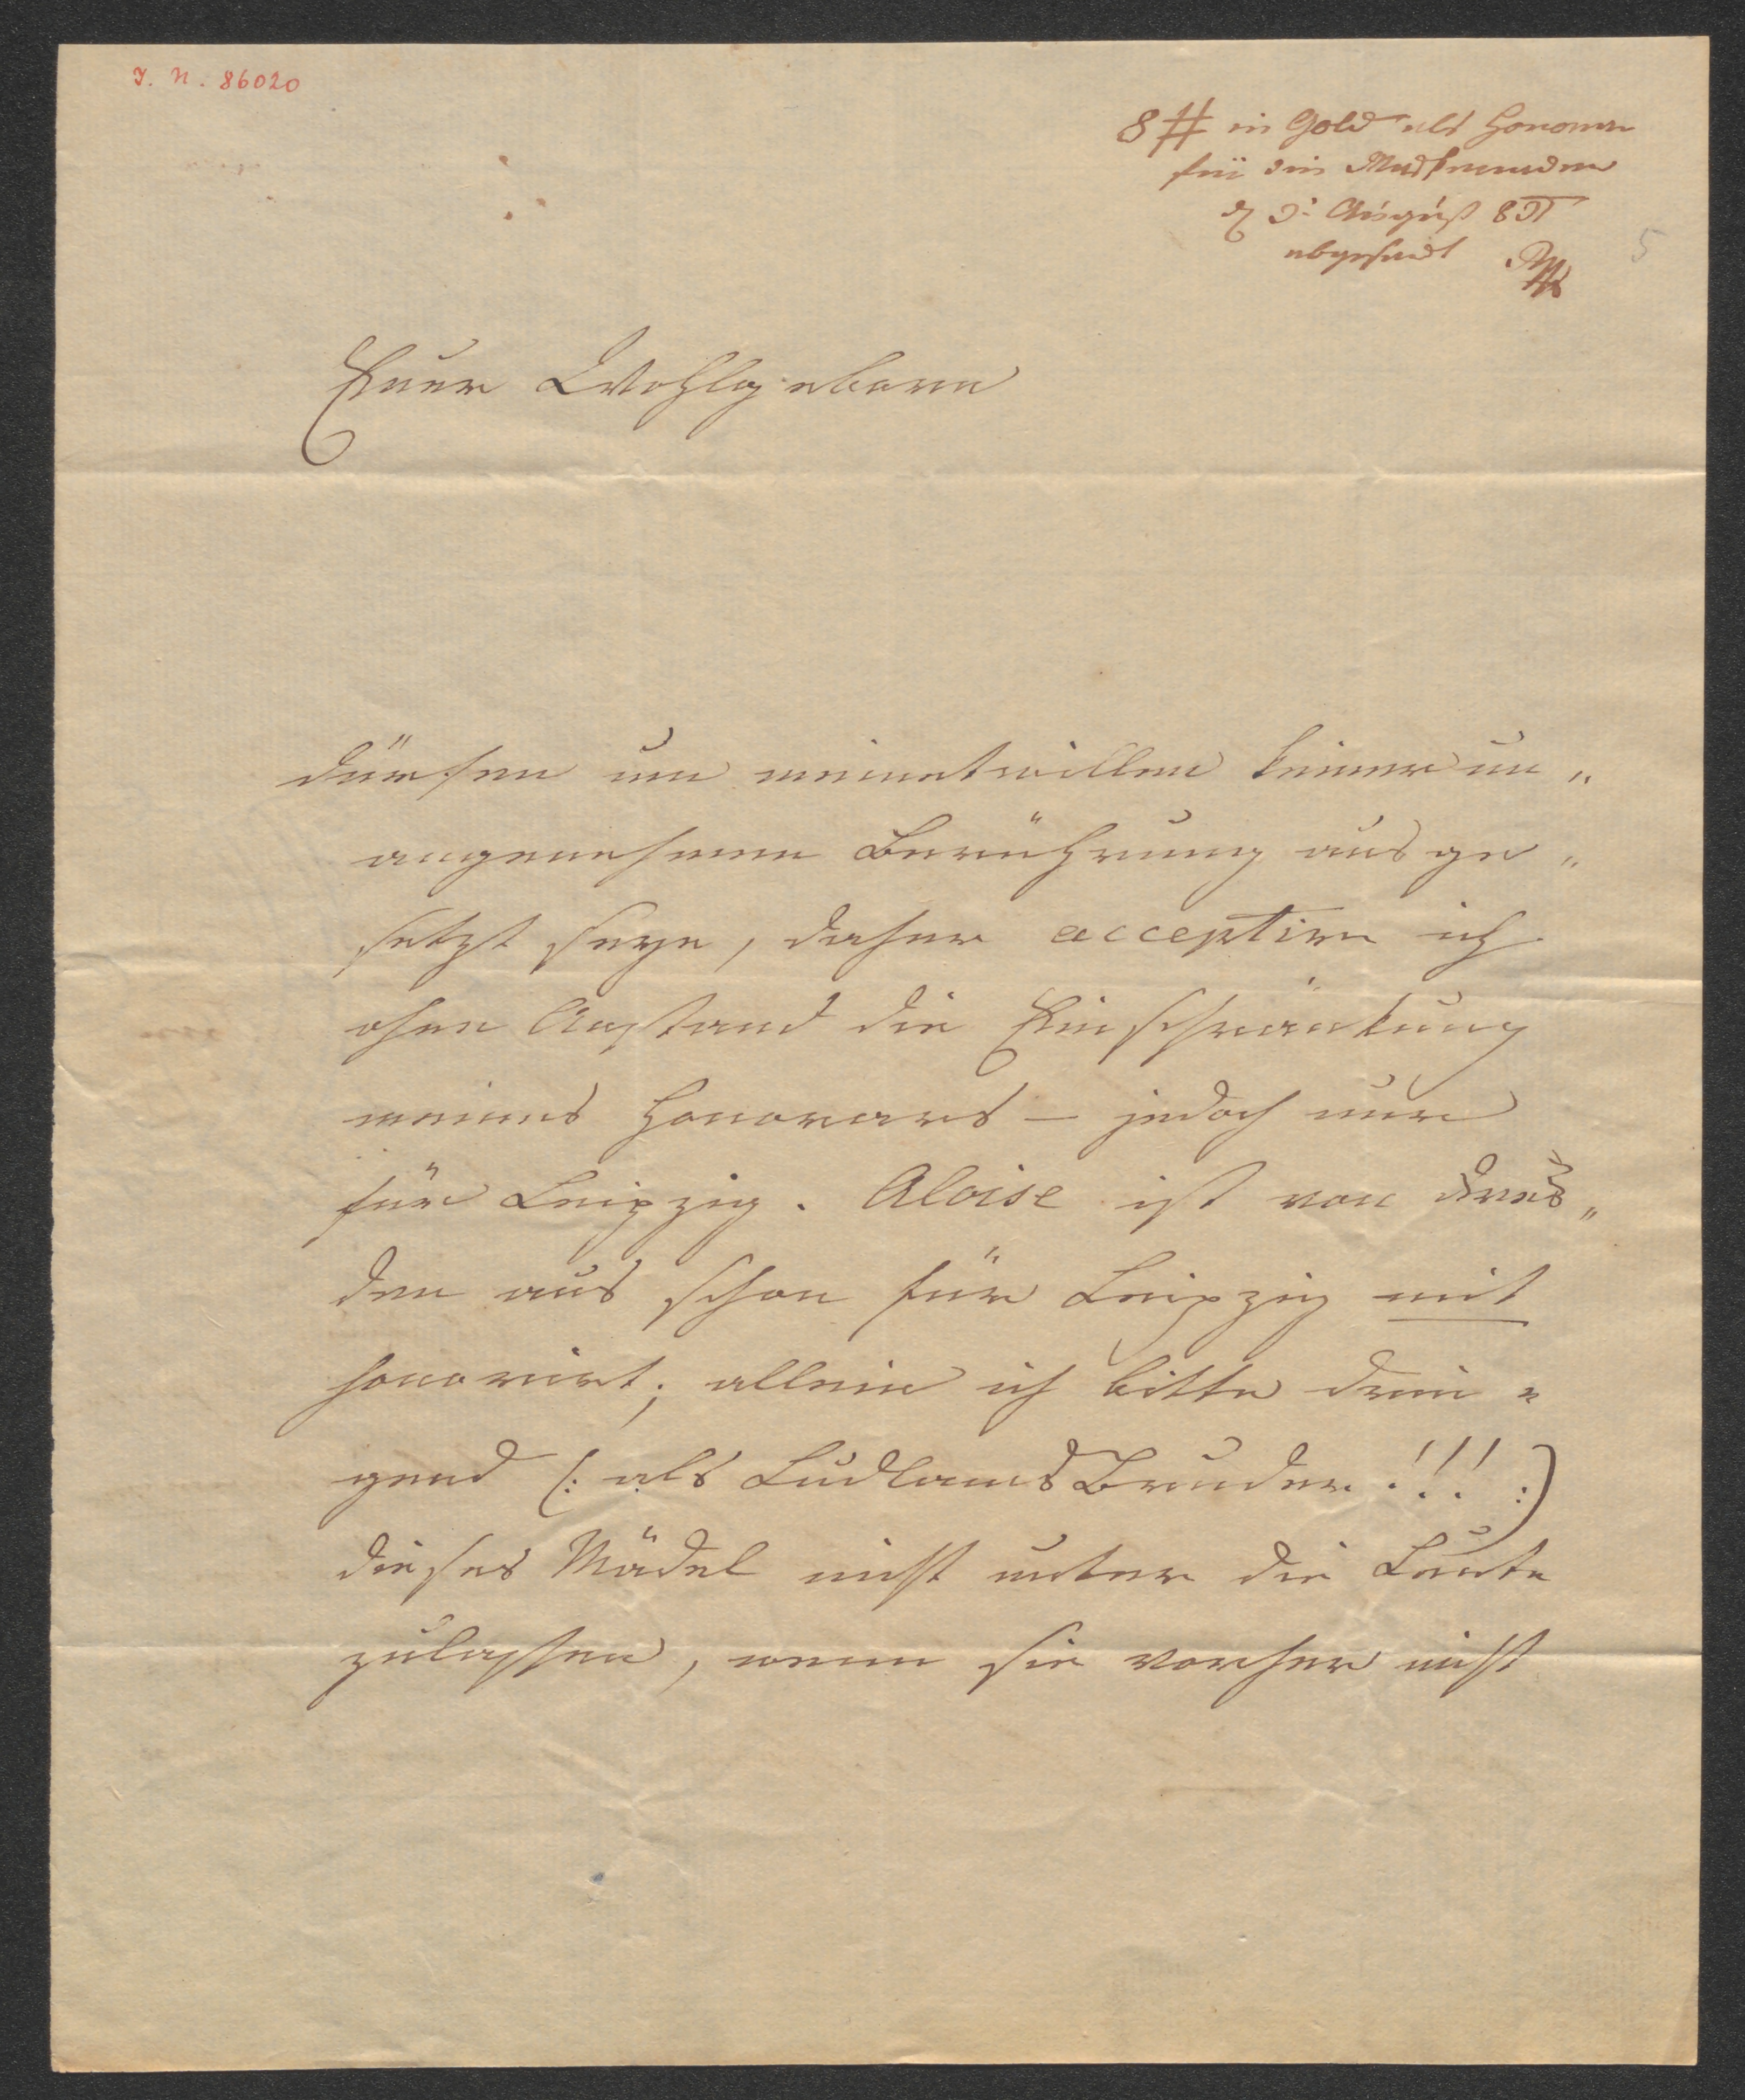 I. N. 86020
8 # in Gold als Honorar
für die
d 3t August 83
abgesandt
5
Euer Wohlgeboren
dürfen um meinetwillen keiner un„
angenehmen Berührung ausge„
setzt seyn, daher acceptire ich
ohne Anstand die Einschränkung
meines Honorars – jedoch nur
für Leipzig. Aloise ist von Dres„
den aus schon für Leipzig mit
honorirt; allein ich bitte drin„
gend (: als Ludlams Bruder!!! :)
dieses Mädel nicht unter die Leute
zulassen, wenn sie vorher nicht